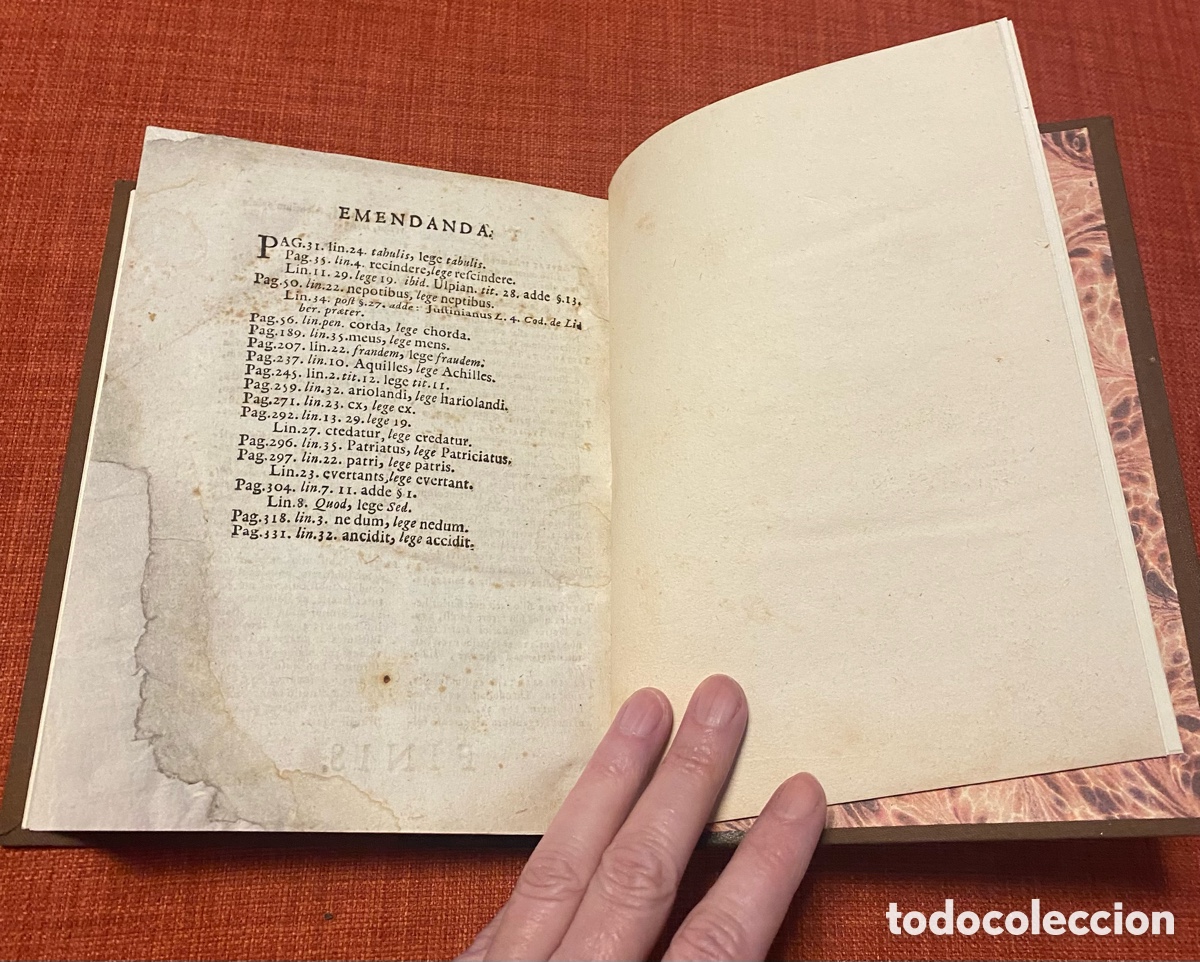 EMENDANDA.
PAG.31. lin.24. tabulis, lege tabulis.
Pag.35. lin.4. recindere, lege reſcindere.
Lin.11. 29. lege 19. ibid. Ulpian. tit. 28. adde §.13.
Pag.50. lin.22. nepotibus, lege neptibus.
Lin.34. poſt §.27. adde: Juſtinianus L. 4. Cod. de Li
ber. præter.
Pag.56. lin.pen. corda, lege chorda.
Pag.189. lin.35. meus, lege mens.
Pag.207. lin.22. frandem, lege fraudem.
Pag.237. lin.10. Aquilles, lege Achilles.
Pag.245. lin.2. tit.12. lege tit.11.
Pag.259. lin.32. ariolandi, lege hariolandi.
Pag.271. lin.23. cx, lege ex.
Pag.292. lin.13. 29. lege 19.
Lin.27. ctedatur, lege credatur.
Pag.296. lin.35. Patriatus, lege Patriciatus.
Pag.297. lin.22. patri, lege patris.
Lin.23. evertants, lege evertant.
Pag.304. lin.7. 11. adde § 1.
Lin.8. Quod, lege Sed.
Pag.318. lin.3. ne dum, lege nedum.
Pag.331. lin.32. ancidit, lege accidit.
FINIS.
todocoleccion